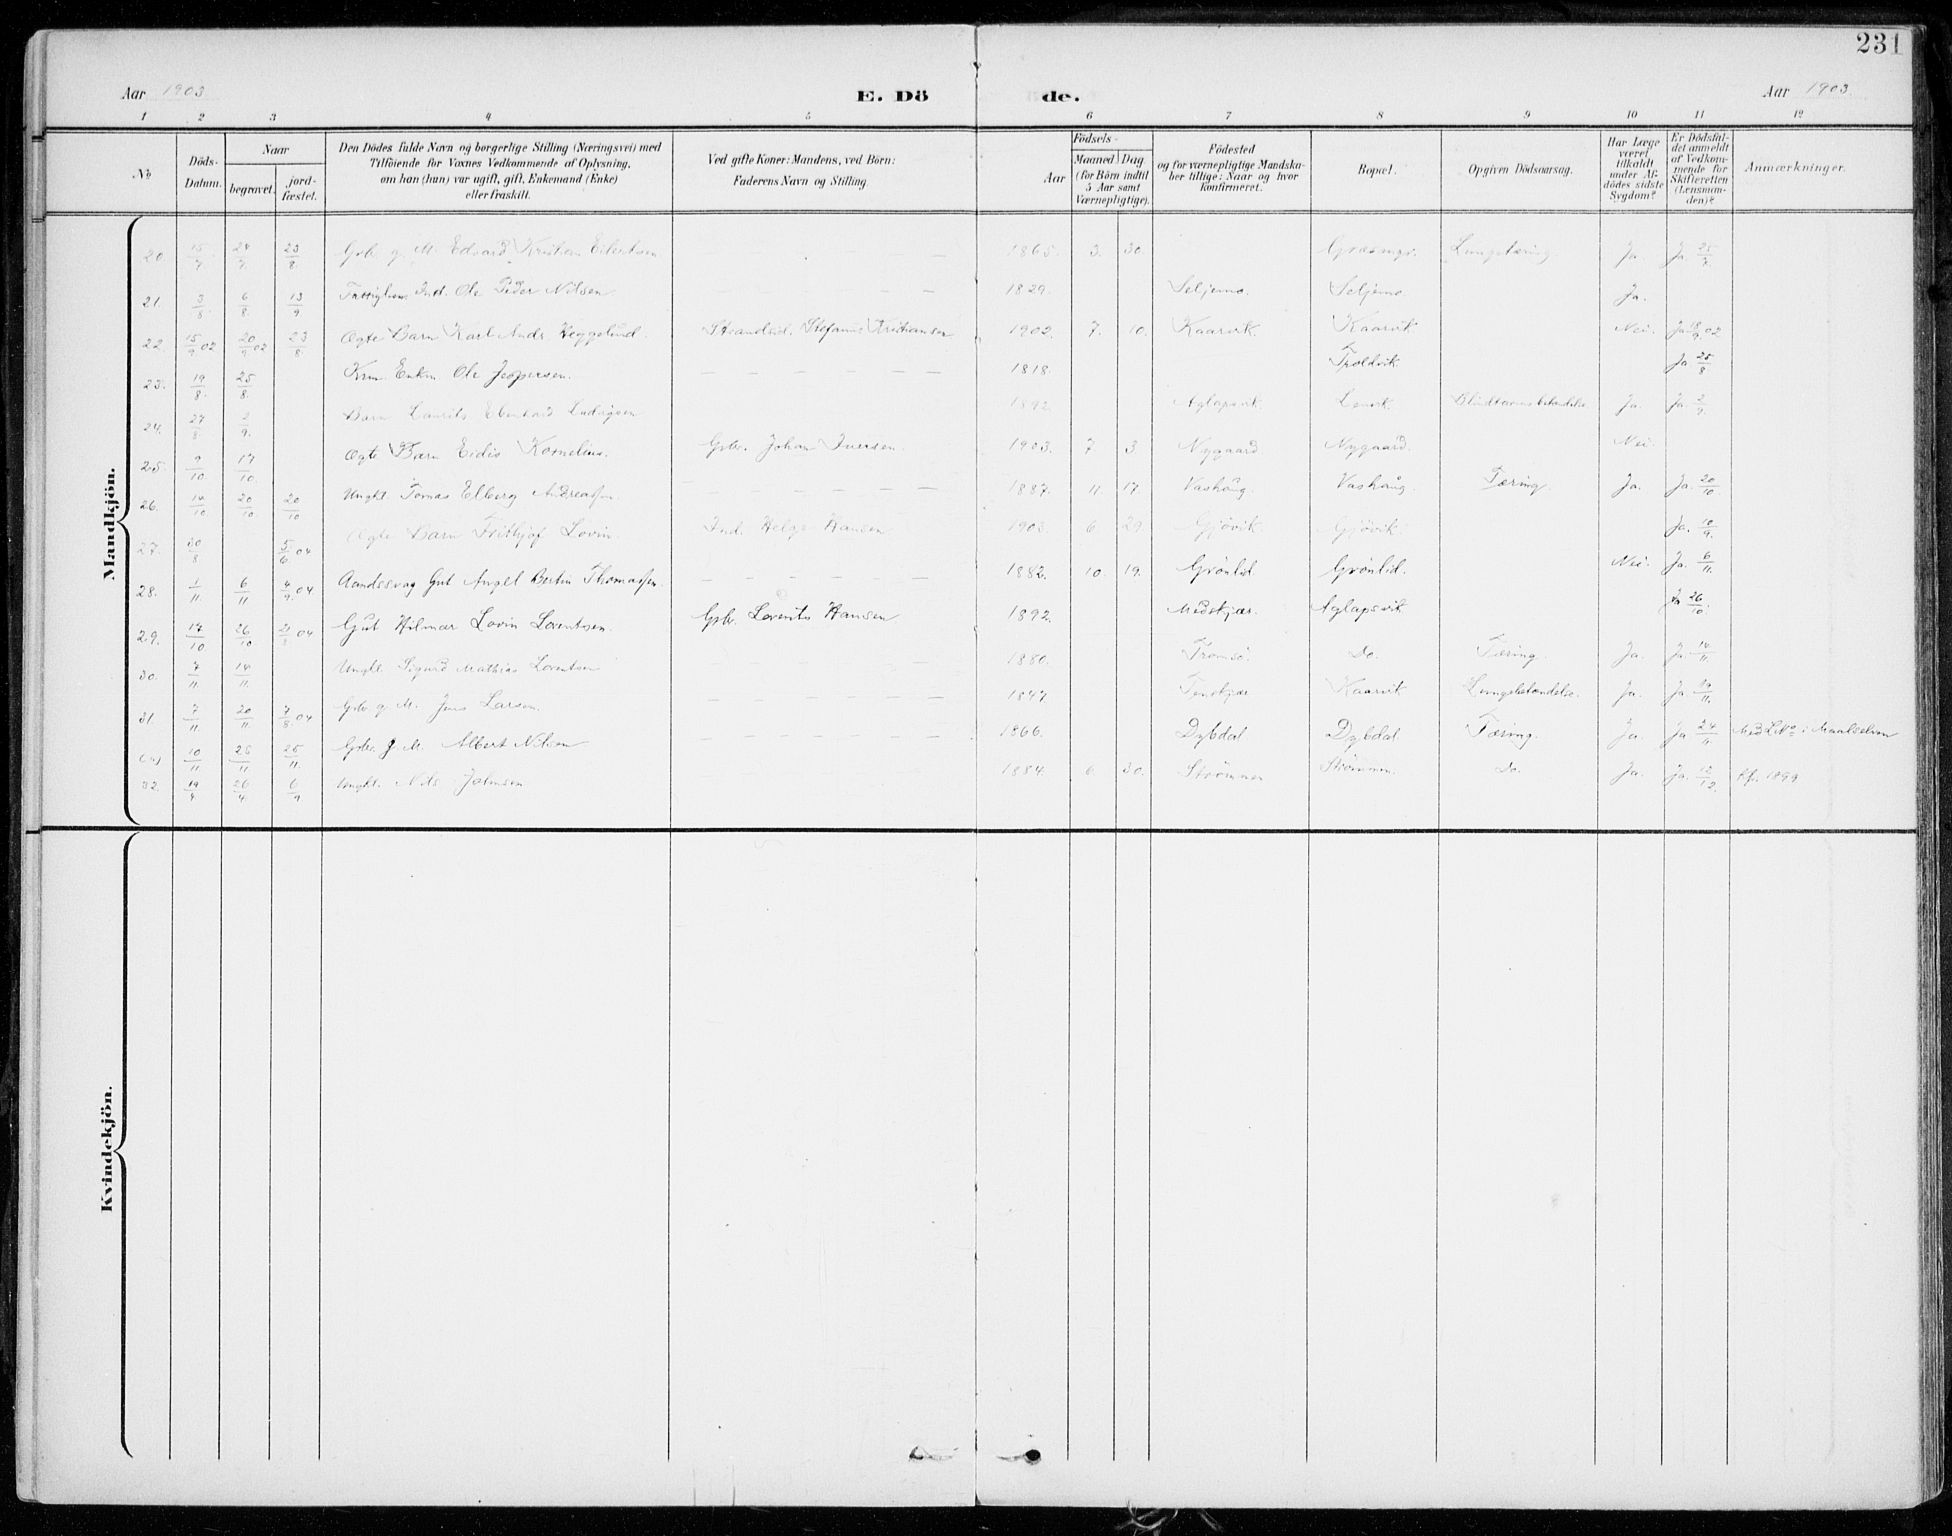 231
Aar 1903 E. Dö de. Aar 1903.
1 2 3 4 5 6 7 8 9 10 11 12
No
Döds-Datum.
Naar
begravet.
jord-fæstet.
Den Dödes fulde Navn og borgerlige Stilling (Næringsvei) med
Tilföiende for Voxnes Vedkommende af Oplysning,
om han (hun) var ugift, gift, Enkemand (Enke)
eller fraskilt.
Ved gifte Koner: Mandens, ved Börn:
Faderens Navn og Stilling.
Aar
Födsels-
Maaned Dag
(for Börn indtil
5 Aar samt
Værnepligtige).
Födested
og for værnepligtige Mandska-
ber tillige: Naar og hvor
konfirmeret.
Bopæl.
Opgiven Dödsaarsag.
Har Læge
været
tilkaldt
under Af-
dödes sidste
Sygdom?
Er Dödsfal-
det anmeldt
af Vedkom-
mende for
Skifteretten
(Lensman-
den)?
Anmærkninger.
Mandkjön.
20. 15/7 24/7. 23/8. Gbr. g. M. Edvard Kristian Eilertsen 1865. 3. 30. Lungetæring Ja Ja 25/7.
21. 3/8. 6/8. 13/9 Ind. Ole Peder Nilsen 1829. Seljemo. Seljemo Ja.
22. 15/9 02 20/9 02 23/8. Ægte Barn Karl Andr. Heggelund. Strandsid. Stefanus Kristiansen 1902. 7. 10. Kaarvik Kaarvik Nei. Ja 18/9 02
23. 19/8. 25/8. Enkm Ole Jespersen. 1818. Troldvik Ja 25/8
24. 27/8. 2/9. Barn Laurits Ebenhard Ludvigsen 1892 Aglapsvik. Lenvik Blindtarmsbetændelse. Ja. Ja 2/9.
25. 9/10 17/10. Ægte Barn Eidis Kornelius. Gbr. Johan Iversen 1903. 7 3 Nygaard Nygaard. Nei.
26. 14/10 20/10 20/10 Ungkl. Tomas Elberg Andreassen. 1887. 11. 17. Vashaug. Vashaug. Tæring. Ja. Ja. 20/10
27. 30/8 5/6 04 Ægte Barn Fridthjof Lovin. Ind. Helge Hansen 1903. 6. 29 Gjövik Gjövik. Ja. 10/9.
28. 1/11. 6/11 4/9 04 Aandssvag Gut Angel Bertin Thomassen. 1882. 10. 19. Grönlid. Grönlid. Nei. Ja. 6/11.
29. 17/10 26/10 04 Gut Hilmar Lovin Lorentsen. Gbr. Lorents Hansen 1892. Aglapsvik 26/10.
30. 7/11. 14/11. Ungkl. Sigurd Mathias Lorentsen 1880. Tromsö. Do. Tæring. Ja. Ja. 14/11.
31. 7/11. 20/11. 7/8. 04 Gbr. g. M. Jens Larsen. 1847. Tenskjær Kaarvik Lungebetændelse. Ja. Ja
10/11 25/11 25/11 Gbr. g. M. Albert Nilsen 1866. Dybdal Dybdal Tæring. Ja. Ja 24/11. i Maalselven
32. 19/4 26/4. 6/9 Ungkl. Nils Johnsen 1884. 6. 30. Strömmen Strömmen. Do. Ja. Ja. 12/12. kf. 1899
Kvindekjön.